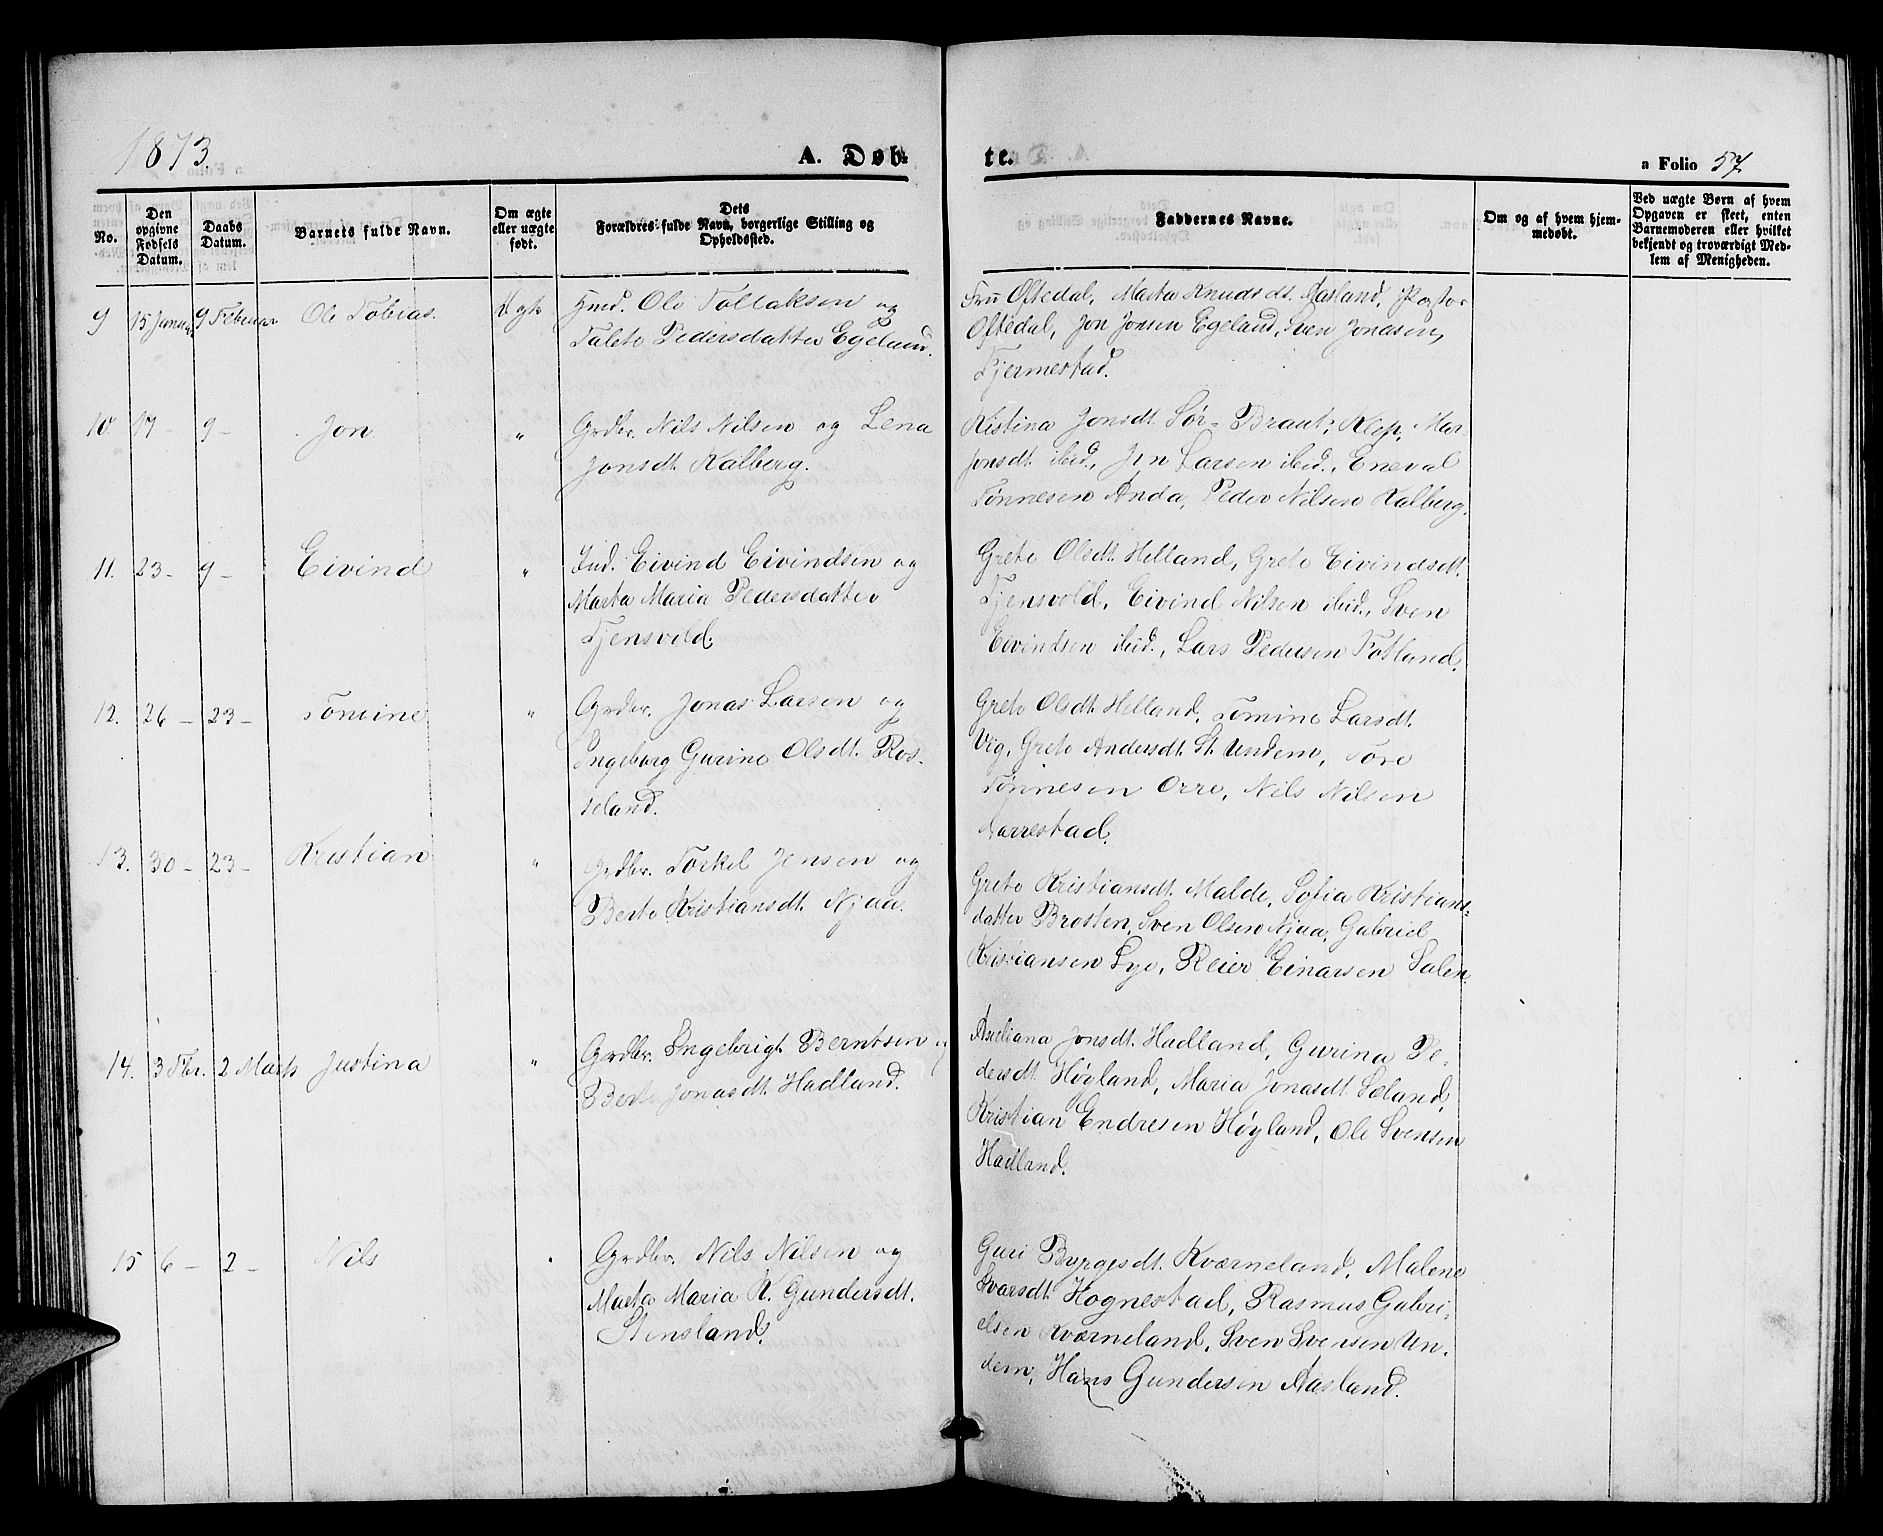 1873.
A. Døb-
te.
a Folio 57
No.
Den opgivne Fødsels Datum.
Daabs Datum.
Barnets fulde Navn.
Om ægte eller uægte født.
Dets Forældres fulde Navn, borgerlige Stilling og Opholdssted.
Faddernes Navne.
Om og af hvem hjemmedøbt.
Ved uægte Børn af hvem Opgaven er skeet, enten Barnemoderen eller hvilket bekjendt og troværdigt Medlem af Menigheden.
9 15 Januar 9 Februar Ole Tobias. Ægte Hmd. Ole Tollaksen og
Talete Pedersdatter Egeland.
Fru Oftedal, Marta Knudsdt. Aasland, Pastor
Oftedal, Jon Jonsen Egeland, Sven Jonasen,
Tjermestad.
10 17 - 9 - Jon " Grdbr. Nils Nilsen og Lena
Jonsdt. Kalberg.
Kistina Jonsdt. Sør-Braut, Klep, Mar-
Jonsdt. ibid., Jon Larsen ibid., Eneval
Tønnesen Anda, Peder Nilsen Kalberg.
11. 23 - 9 - Eivind " Ind. Eivind Eivindsen og
Marta Maria Pedersdatter
Tjensvold.
Grete Olsdt. Helland, Grete Eivindsdt.
Tjensvold, Eivind Nilsen ibid., Sven
Eivindsen ibid., Lars Pedersen Fotland.
12. 26 - 23 - Tomine " Grdbr. Jonas Larsen og
Ingeborg Gurine Olsdt. Ros-
seland.
Grete Olsdt. Helland, Tomine Larsdt.
Vig, Grete Andersdt. St. Undem, Tore
Tønnesen Orre, Nils Nilsen
Harrestad.
13. 30 - 23 - Kristian " Grdbr. Torkel Jensen og
Berte Kristiansdt. Njaa.
Grete Kristiansdt. Malde, Sofia Kristians-
datter Brosten, Sven Olsen Njaa, Gabriel
Kristiansen Lye, Reier Einarsen Salen.
14. 3 Fbr. 2 Marts Justina " Grdbr. Ingebrigt Berntsen og
Berte Jonasdt. Hadland.
Aseliana Jonsdt. Hadland, Gurina Pe-
dersdt. Høyland, Maria Jonasdt. Sæland,
Kristian Endresen Høyland, Ole Svensen
Hadland.
15 6 - 2 - Nils " Grdbr. Nils Nilsen og
Marta Maria K. Gundersdt.
Stensland.
Guri Byrgesdt. Kværneland, Malene
Ivarsdt. Hognestad, Rasmus Gabri-
elsen Kværneland, Sven Svensen Un-
dem, Hans Gundersen Aasland.